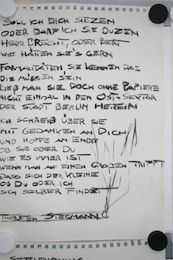 SOLL ICH DICH SIEZEN
ODER DARF ICH SIE DUZEN
HERR BRECHT, ODER BERT
WIE HÄTTEN SIE'S GERN
FORMALITÄTEN SIE KENNEN DAS
DIE MÜSSEN SEIN
LIEß MAN SIE DOCH OHNE PAPIERE
NICHT EINMAL IN DEN OST-SEKTOR
DER STADT BERLIN HEREIN
ICH SCHREIB ÜBER SIE
MIT GEDANKEN AN DICH
UND HOFFE AM ENDE
OB SIE ODER DU
WIE ES IMMER IST
WENN MAN AN EINEN GROßEN TRIFFT
DASS SICH DER KLEINE
OB DU ODER ICH
SICH SELBER FINDET
STEGMANN